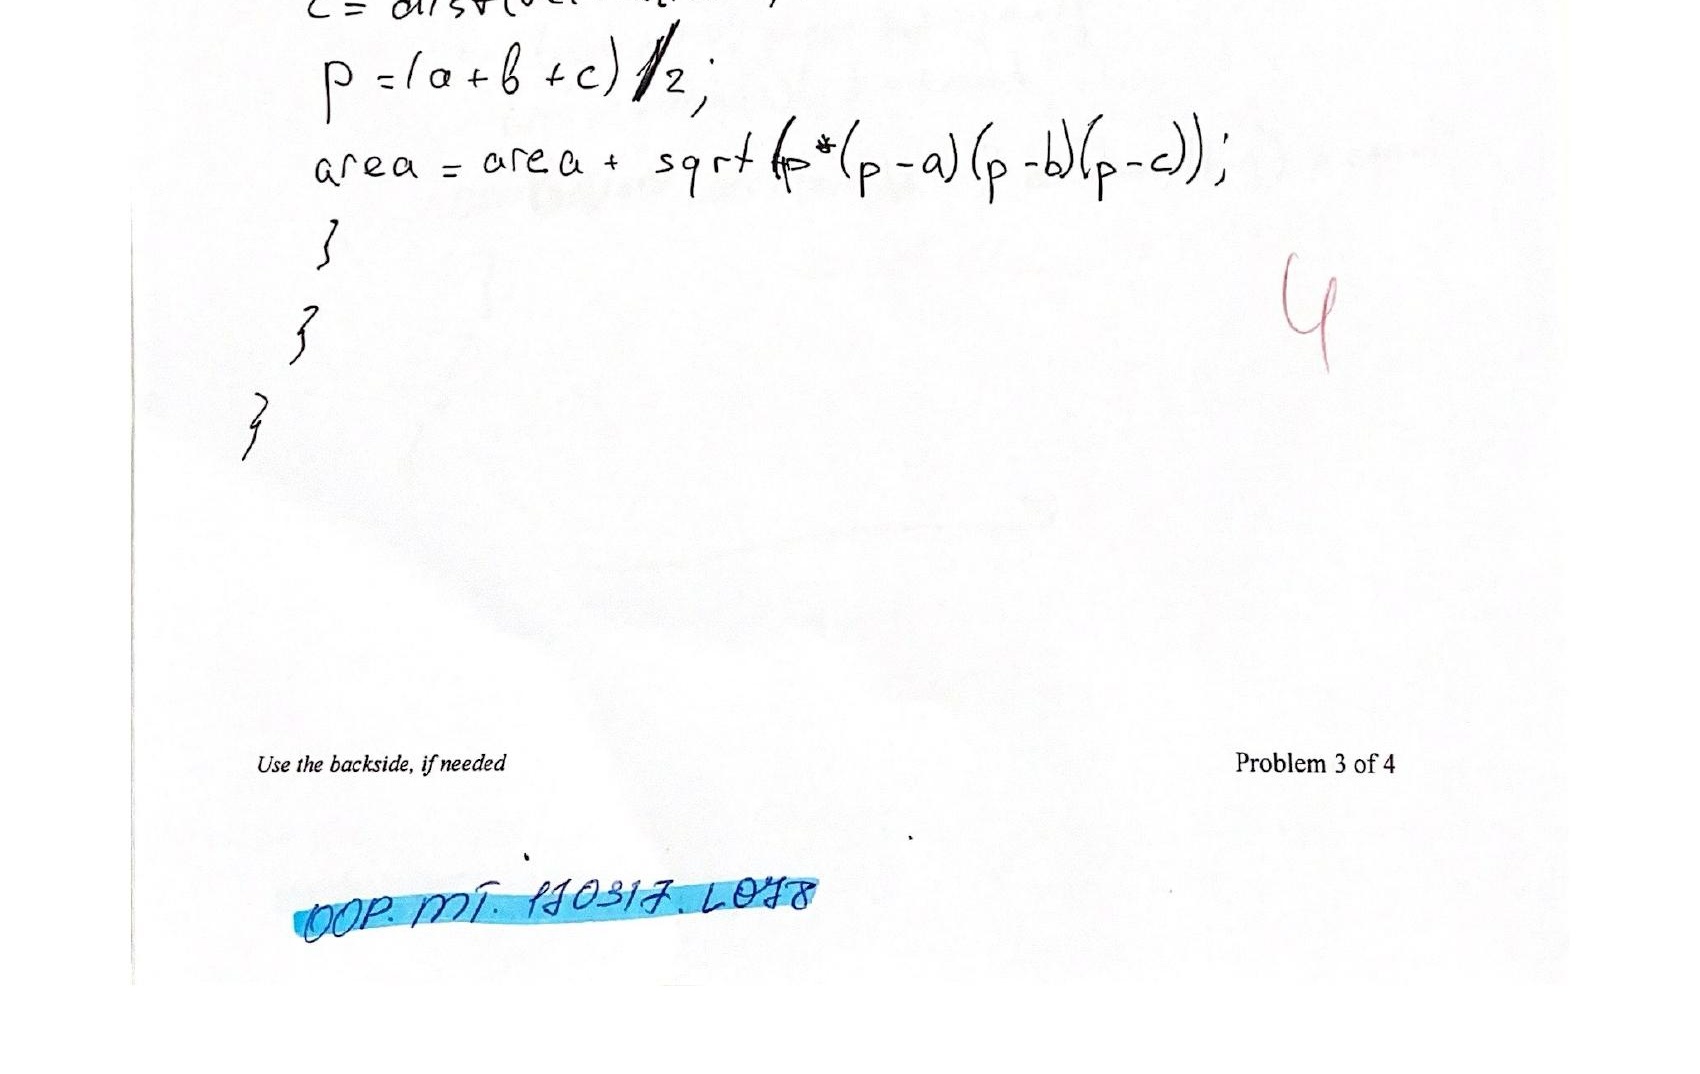 p = (a + b + c) / 2;
area = area + sqrt (p*(p-a)(p-b)(p-c));
}
}
}
4
Use the backside, if needed
Problem 3 of 4
OOP. MT. 170317. L078